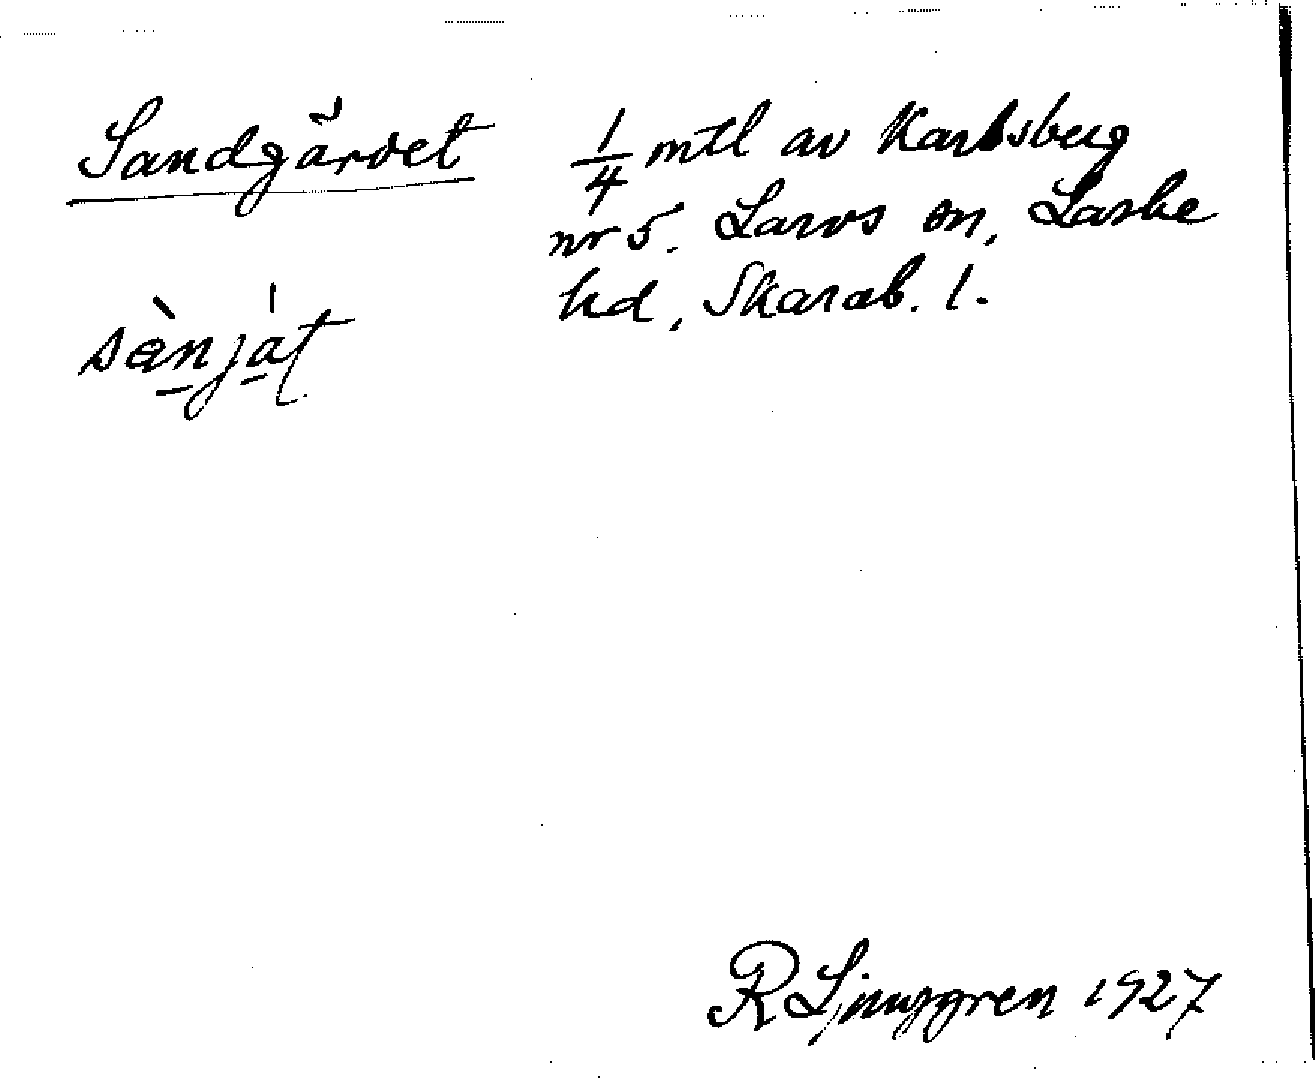 Sandgärdet
sànját
1/4 mtl av Karlsberg
nr 5. Larvs sn, Laske
hd, Skarab. l.
R Ljunggren 1927